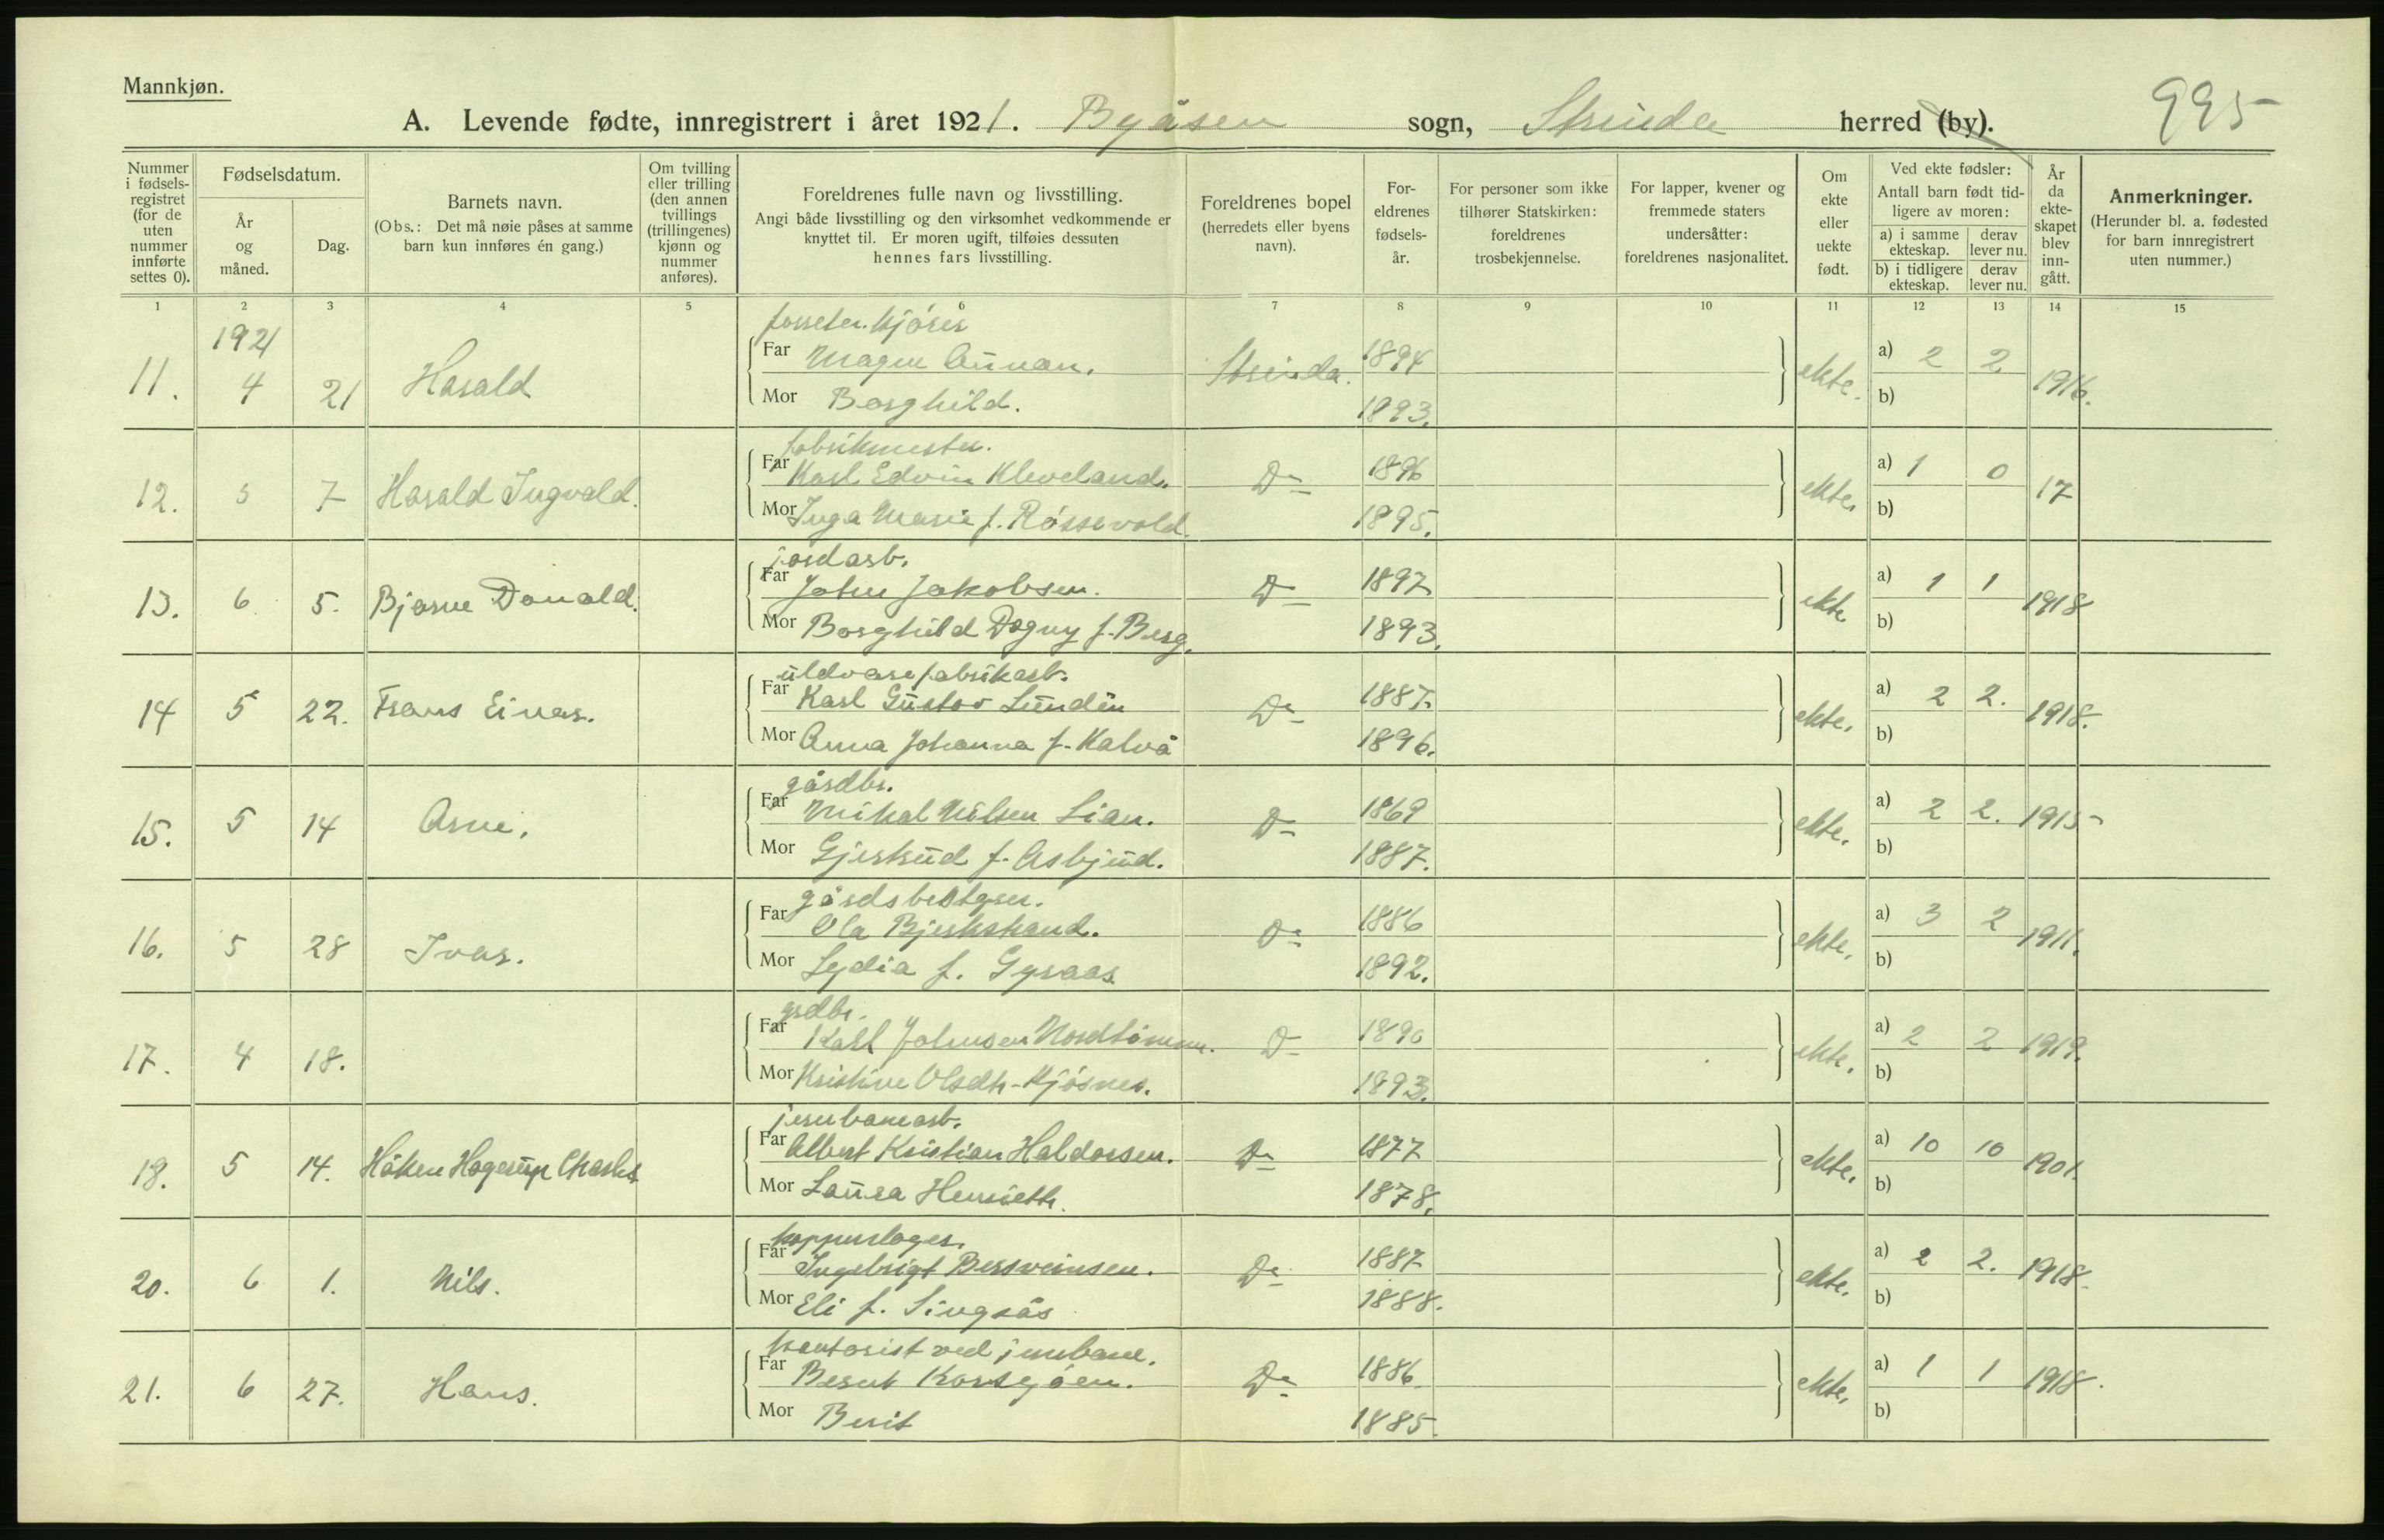 Mannkjøn.
A. Levende fødte, innregistrert i året 1921. Byåsen sogn, Strinda herred (by). 995
Nummer i fødsels-registret (for de uten nummer innførte settes 0).
Fødselsdatum.
År og måned.
Dag.
Barnets navn.
(Obs.: Det må nøie påses at samme barn kun innføres én gang.)
Om tvilling eller trilling (den annen tvillings (trillingenes) kjønn og nummer anføres).
Foreldrenes fulle navn og livsstilling.
Angi både livsstilling og den virksomhet vedkommende er knyttet til. Er moren ugift, tilføies dessuten hennes fars livsstilling.
Foreldrenes bopel (herredets eller byens navn).
For-eldrenes fødsels-år.
For personer som ikke tilhører Statskirken: foreldrenes trosbekjennelse.
For lapper, kvener og fremmede staters undersåtter: foreldrenes nasjonalitet.
Om ekte eller uekte født.
Ved ekte fødsler: Antall barn født tid-ligere av moren:
a) i samme ekteskap.
derav lever nu.
b) i tidligere ekteskap.
derav lever nu.
År da ekte-skapet blev inn-gått.
Anmerkninger.
(Herunder bl. a. fødested for barn innregistrert uten nummer.)
1 2 3 4 5 6 7 8 9 10 11 12 13 14 15
1921
kjører
11. 4 21 Harald Far Magne Aunan. Strinda. 1894 ekte. a) 2 2 1916.
Mor Borghild. 1893. b)
fabrikmester.
12. 5 7 Harald Ingvald. Far Karl Edvin Kleveland. Do 1896 ekte. a) 1 0 17
Mor Inga Marie f. Røssevold. 1895. b)
jordarb.
13. 6 5. Bjarne Donald. Far John Jakobsen. Do 1897 ekte a) 1 1 1918
Mor Borghild Dagny f. Berg. 1893. b)
uldvarefabrikarb.
14 5 22. Frans Einar. Far Karl Gustav Lundin Do 1887. ekte. a) 2 2. 1918.
Mor Anna Johanna f. Kalvå 1896. b)
gårdbr.
15. 5 14 Arne. Far Mikal Nilsen Lian. Do 1869 ekte. a) 2 2. 1915
Mor Gjertrud f. Asbjud. 1887. b)
gårdsbestyrer.
16. 5 28 Ivar. Far Ola Bjerkstrand. Do 1886 ekte. a) 3 2 1911.
Mor Lydia f. Gynaas 1892. b)
grdbr.
17. 4 18. Far Karl Johnsen Nordtømme. Do 1890 ekte. a) 2 2 1919.
Mor Kristine Olsdtr Kjøsnes. 1893. b)
jernbanearb.
19. 5 14. Håken Hagerup Charles Far Albert Kristian Haldorsen. Do 1877 ekte. a) 10 10 1901.
Mor Laura Henriette. 1878. b)
kopperslager.
20. 6 1. Nils. Far Ingebrigt Bersveinsen. Do 1887 ekte. a) 2 2. 1918.
Mor Eli f. Singsås 1888. b)
kontorist ved jernbane.
21. 6 27. Hans. Far Bernt Korsgåen. Do 1886 ekte. a) 1 1 1918.
Mor Berit 1885. b)